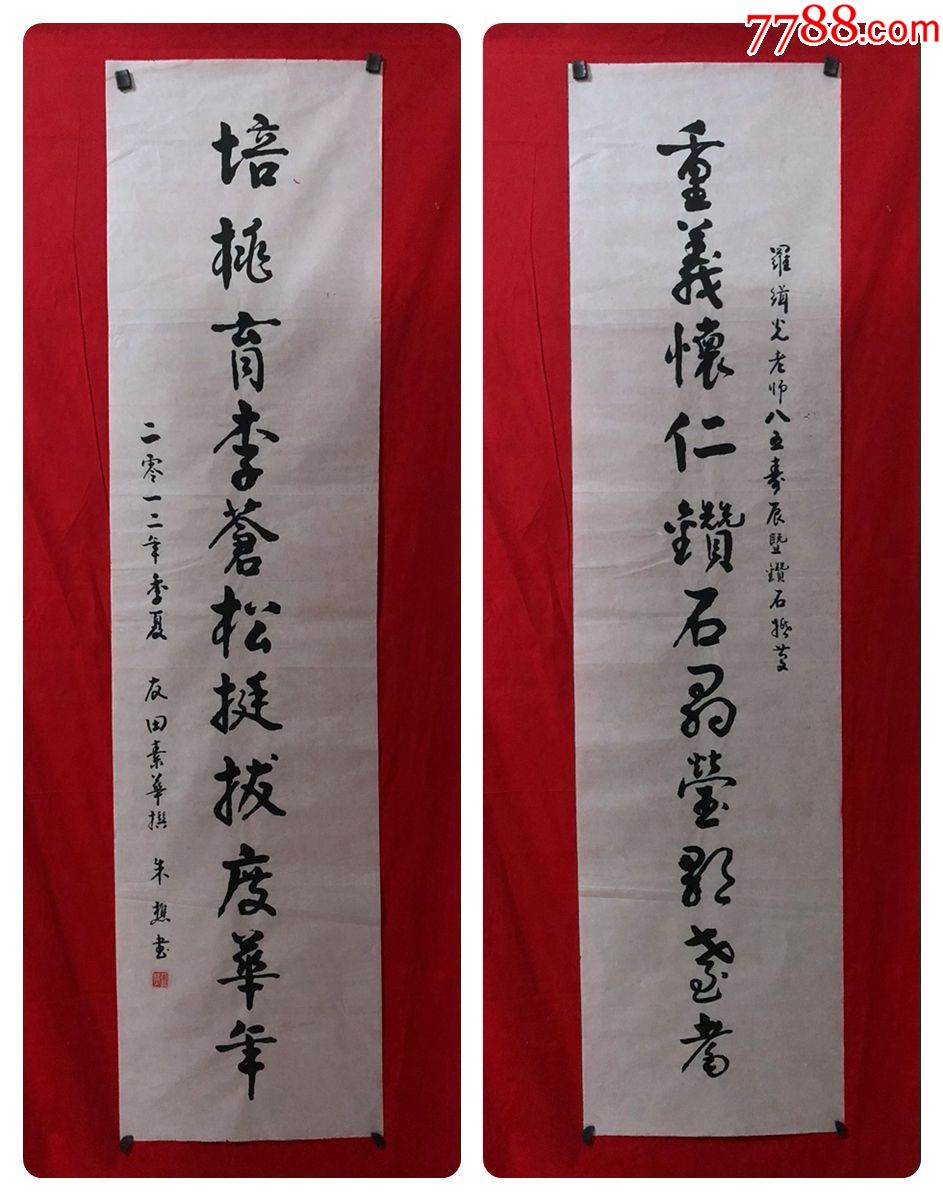 7788.com
羅緝光老师八五壽辰暨鑽石婚慶
重義懷仁鑽石晶瑩耋耆
培桃育李蒼松挺拔度華年
二零一二年季夏 友田素華撰 朱書